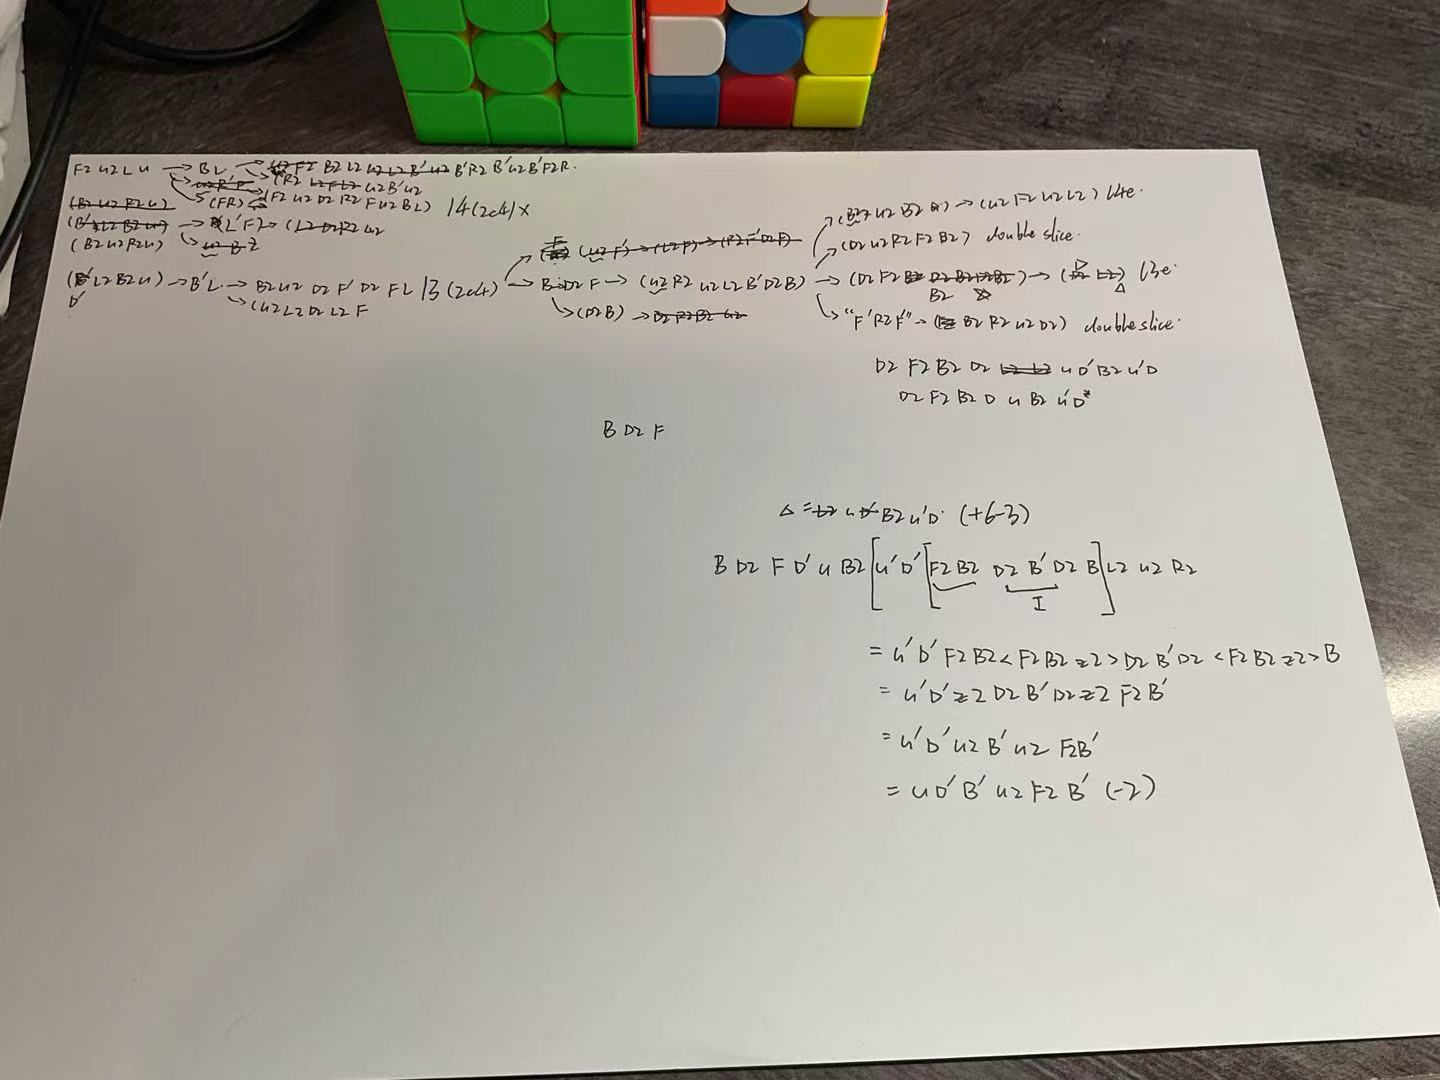 F2 u2 L u → B L → B2 L2 B'R2 B'u2 B'F2 R.
(R2 u2 B'u2
(FR) (F2 u2 D2 R2 F u2 B L) 14 (2c4) x
(B2 u2 R2 u)
(B' L2 B2 u) → L'F2 → (L2 D2 R2 u2
(B2 u2 R2 u) u2 B 2
(B' L2 B2 u) → B'L. → B2 u2 D2 F' D2 F L 13 (2c4) → B D2 F → (u2 R2 u2 L2 B'D2 B) → (D2 F2 B2) → 13e.
D' (u2 L2 D2 L2 F
(u2 F') → (L2 F) → (R2 F'D2 F)
→ (D2 B) → D2 F2 B2 u2
u2 B2 → (u2 F2 u2 L2) 14e.
(D2 u2 R2 F2 B2) double slice.
Δ
"F'R2 F" → B2 R2 u2 D2) double slice.
D2 F2 B2 D2 L2 L2 u D' B2 u'D
D2 F2 B2 D u B2 u'D²
B D2 F
Δ = u D' B2 u'D. (+6-3)
B D2 F D' u B2 [u'D' [F2 B2 D2 B' D2 B] L2 u2 R2
I
= u'D' F2 B2 < F2 B2 z2 > D2 B'D2 < F2 B2 z2 > B
= u'D' z2 D2 B' D2 z2 F2 B'
= u'D' u2 B' u2 F2 B'
= u D' B' u2 F2 B' (-2)